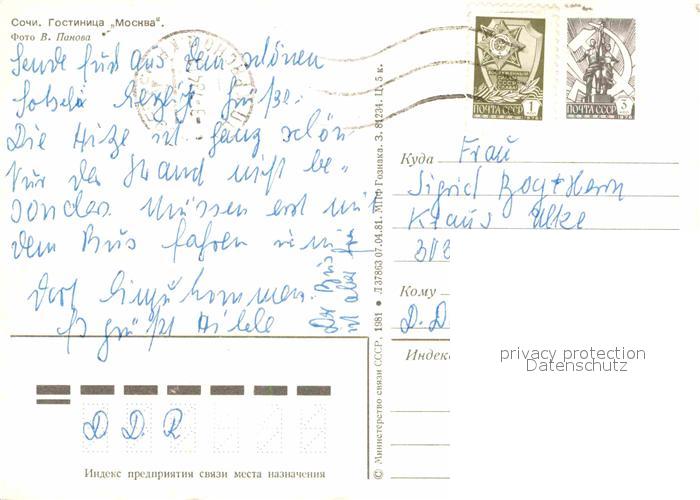 Сочи. Гостиница „Москва“.
Фото В. Панова
Sende für aus dem schönen
Sotschi herzl. Grüße.
Die Hitze ist ganz schön
Nur der Strand nicht be-
sonders. Müssen erst mit
dem Bus fahren um
dort hinzukommen.
Es grüßt
Der Bus
ist aber
© Министерство связи СССР, 1981 ● Л37863 07.04.81. МПФ Гознака. З. 81234. Ц. 5 к.
ПОЧТА СССР 1
1976
ПОЧТА СССР
1976
Куда Frau
Sigrid
Klaus
Кому
D. D
Индекс
privacy protection
Datenschutz
D D R
Индекс предприятия связи места назначения